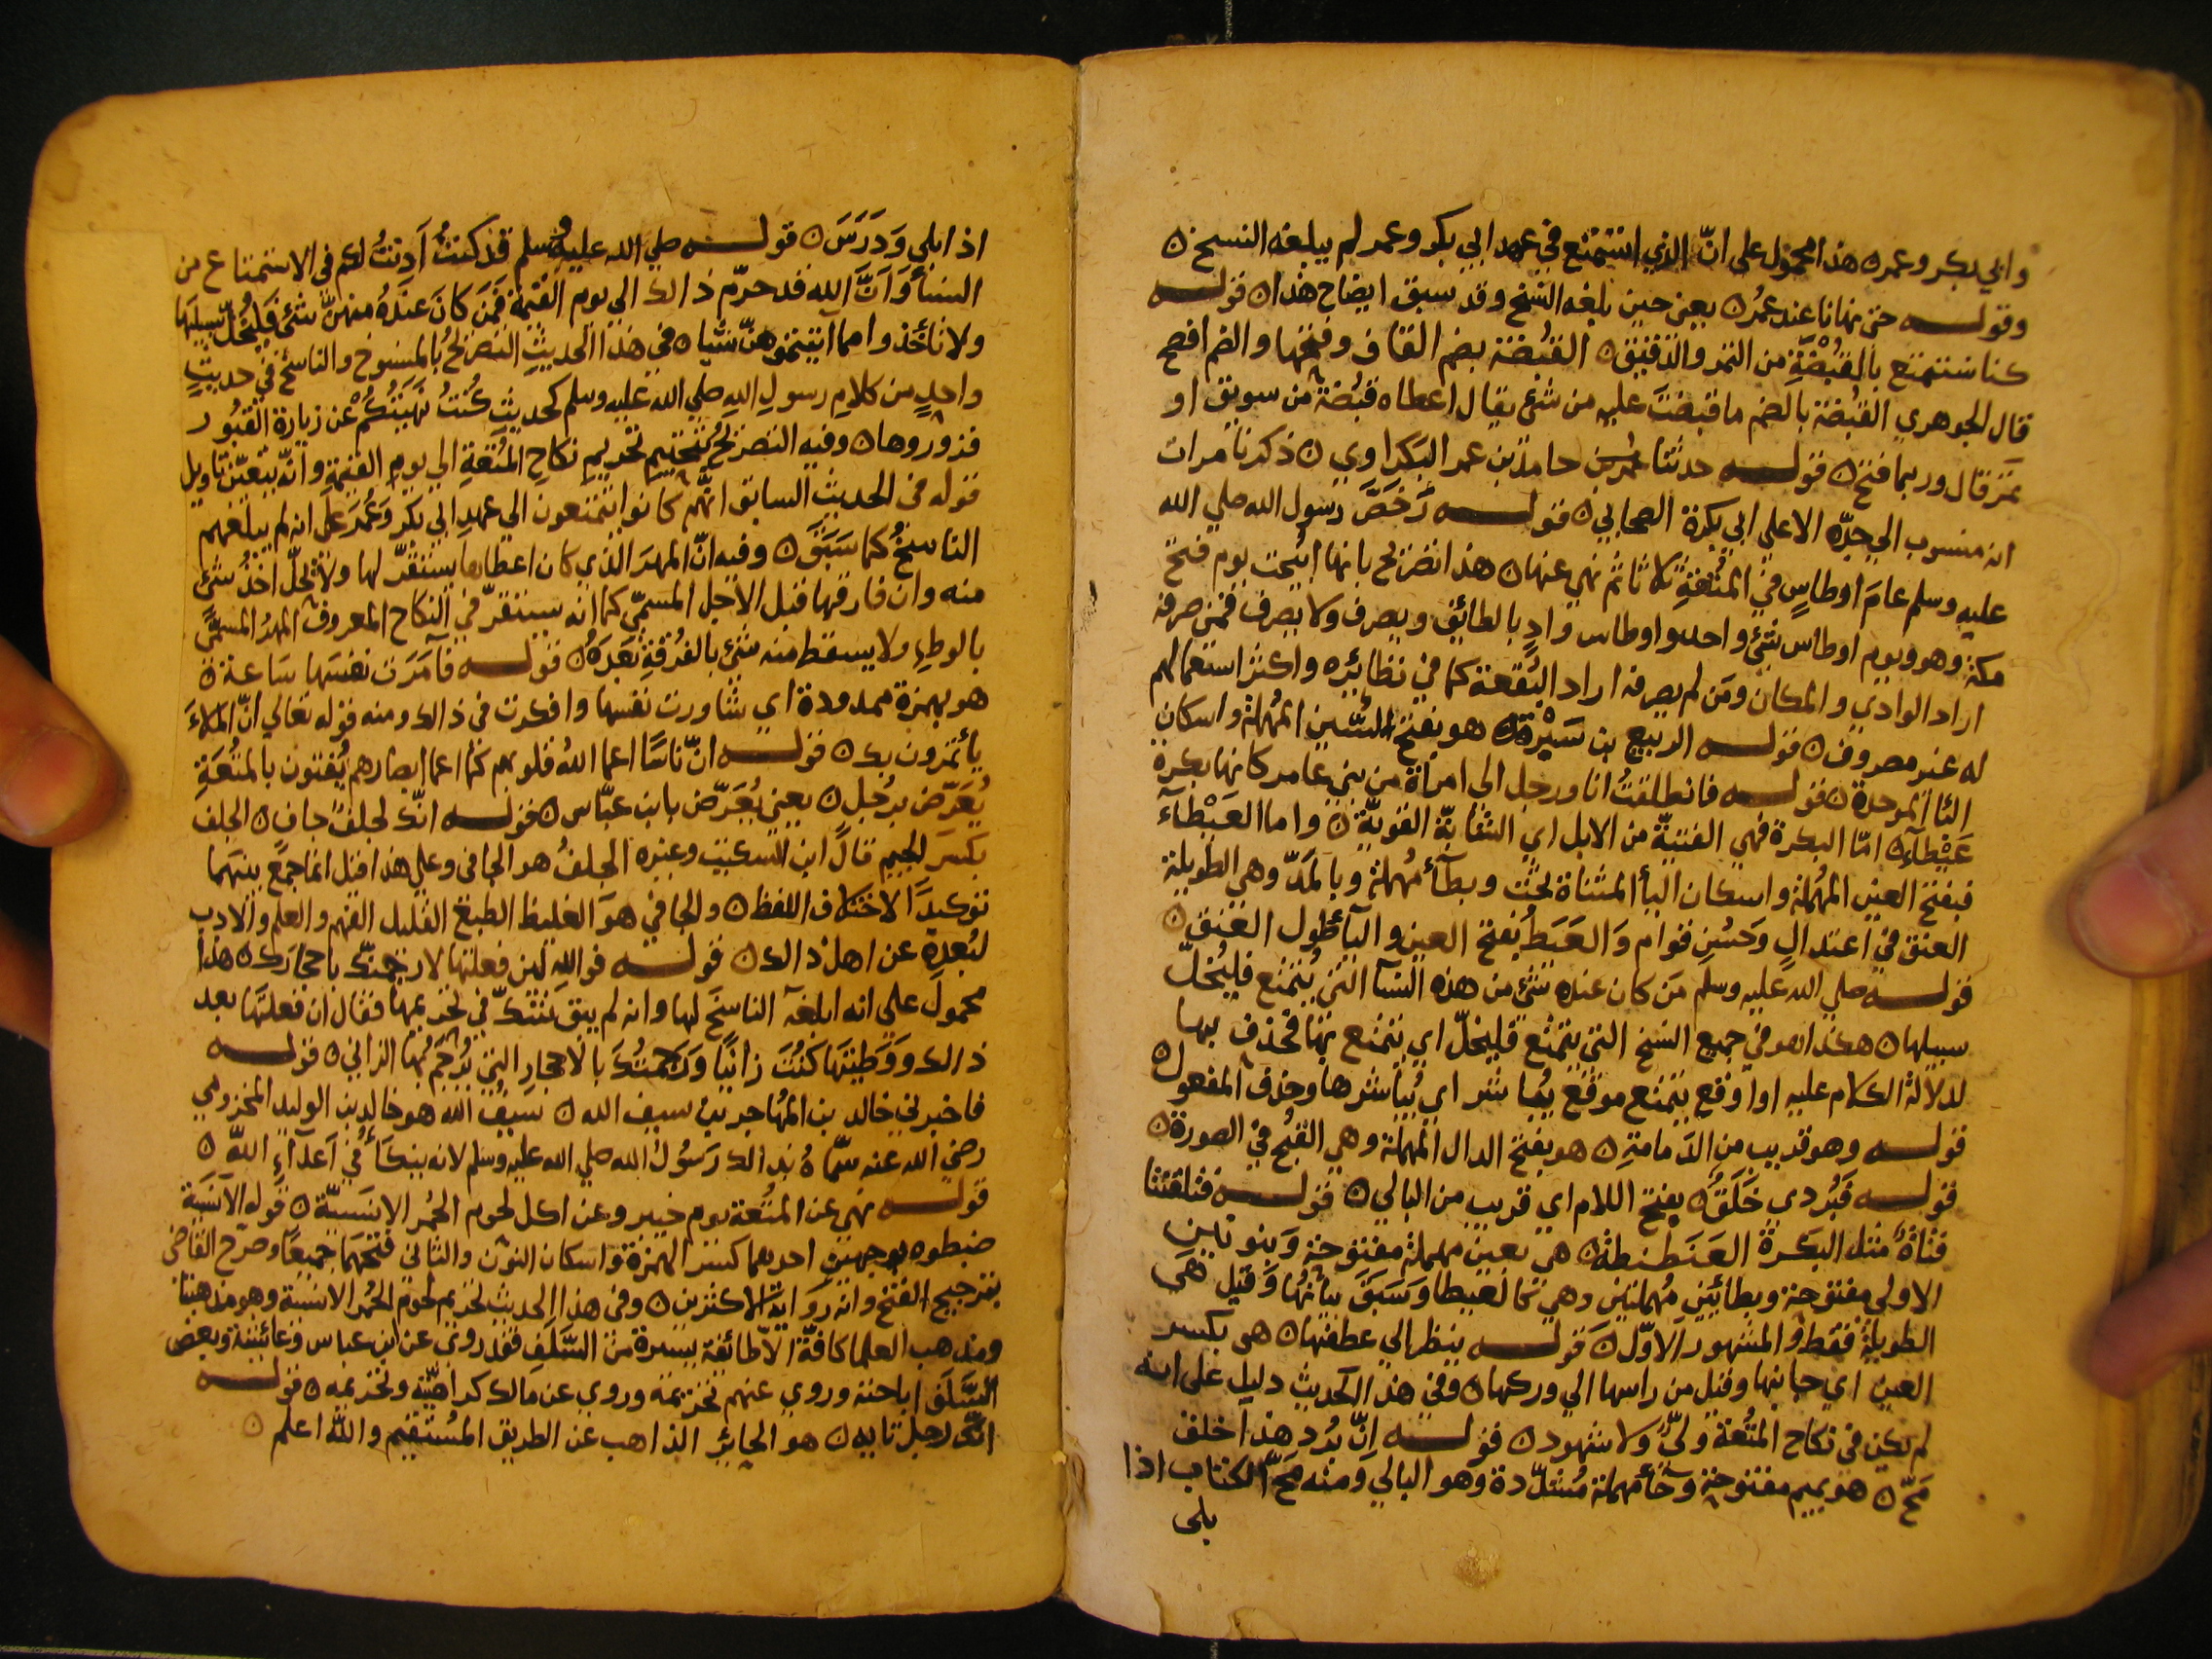 وابي بكر وعمر ه هذا محمول على انّ الذي استمتع في عهد ابي بكر وعمر لم يبلغه النسخ ه
وقوله حتى نهانا عنه عمر ه يعني حين بلغه النسخ وقد سبق ايضاح هذا ه قوله
كنا نستمتع بالقُبْضَةِ من التمر والدقيق ه القبضة بضم القاف وفتحها والضم افصح
قال الجوهري القُبضة بالضم ما قبضتَ عليه من شئ يقال اعطاه قبُضة من سويق او
تمر قال وربما فتح ه قوله حدثنا حامد بن عمر البكراوي ه ذكرنا مرات
انه منسوب الى جدّه الاعلى ابي بكرة الصحابي ه قوله رَخَصَّ رسول الله صلي الله
عليه وسلم عامَ اوطاسٍ في المُتْعَةِ ثلاثا ثم نهي عنها ه هذا تصريح بانها ابُيحت يوم فتح
مكة وهو ويوم اوطاس شئ واحد واوطاس وادٍ بالطائف ويصرف ولا يصرف فمن صرفه
اراد الوادي والمكان ومَن لم يصرفه اراد البُقعة كما في نظائره واكثر استعمالهم
له غير مصروف ه قوله الربيع بن سَبْرة ه هو بفتح السّين المهملة واسكان
البا الموحدة ه قوله فانطلقتُ انا ورجل الى امرأة من بني عامر كانها بكرة
عَيْطآء ه امّا البكرة فهي الفتيّة من الابل اي الشابّة القويّة ه واما العَيْطآء
فبفتح العين المهُملة واسكان اليأ المثناة تحت وبطآء مُهملة وبالمدّ وهي الطويلة
العنق في اعتدالٍ وحُسْنِ قوام وَالعَيَطُ بفتح العين واليأ طول العنق ه
قوله صلي الله عليه وسلم مَن كان عنده شئ من هذه النسآ التي يتمتع فليُخلّ
سبيلها ه هكذا هو في جميع النسخ التي يتمتع فليخلّ اي يتمتع بها فحذف بها
لدلالة الكلام عليه او اوقع يتمتع موقع يُباشر اي يُباشرها وحذف المفعول ه
قوله وهو قريب من الدَمامة ه هو بفتح الدال المهملة وهي القبُح في الصورة ه
قوله فبُردي خَلَقٌ ه بفتح اللام اي قريب من البالي ه قوله فتلقتنا
فتاةٌ مثل البكرة العَنَطْنطة ه هي بعين مهملة مفتوحة وَبنونين
الاولى مفتوحة وبطائين مُهملتين وهي كالعيطا وَسَبَقَ بيانُها وَقيل هي
الطويلة فقط والمشهور الاوّل ه قوله ينظر الى عطفها ه هو بكسر
العين اي جانبها وقيل من راسها الي وركها ه وفي هذا الحديث دليل على انه
لم يكن في نكاح المتُعة وليٌّ ولا شهود ه قوله انّ بُرد هذا خلق
مَحّ ه هو بميم مفتوحة وحأ مهملة مُشدّدة وهو البالي ومنه مَحَّ الكتاب اذا
بلى
اذا بلي وَدَرَسَ ه قوله صلي الله عليه وسلم قد كنتُ اَذِنتُ لكم في الاستمتاع من
النسأ وَانَّ الله قد حرّم ذالك الى يوم القيمة فَمَن كانَ عندَهُ منهنّ شئ فليُخلّ سبيلَها
ولا تأخذوا مما اتيتموهنّ شيا ه في هذا الحديثِ التصريحُ بالمنسوخ والناسخ في حديثٍ
واحدٍ من كلام رسولِ الله صلي الله عليه وسلم كحديثِ كُنتُ نهَيَتُكُمْ عن زيارة القبُور
فزوروها ه وفيه التصريح بتحريم نكاح المتُعةِ الى يوم القيمةِ وانّه يتعيّن تاويل
قوله في الحديث السابق انهّم كانوا يتمتعون الي عهدِ ابي بكر وعُمَرَ على انه لم يبلغهم
الناسخُ كما سَبَقَ ه وفيه انّ المهرَ الذي كان اعطاها يستقرّ لها ولا يحلّ اخذُ شئ
منه وان فارقها قبل الاجل المسمّى كما انه يستقرّ في النكاح المعروف المهرُ المسمَّى
بالوطءِ ولا يسقط منه شئ بالفُرقةِ بَعدَهُ ه قوله فآمَرَت نفسَها سَاعة ه
هو بهمزة ممدودة اي شاورت نفسها وافكرت في ذالك ومنه قوله تعالي انّ الملأَ
يأتمرون بك ه قوله انّ ناسًا اعما اللهُ قلوبهم كما اعما ابصارهم يُفتون بالمتُعَةِ
يُعَرّض برَجُلٍ ه يعني يُعَرّض بابن عبّاس ه قوله انّك لجلفٌ جاف ه الجلف
بكسر الجيم قال ابن السكيت وغيره الجلفُ هو الجافي وعلي هذا قيل انما جمع بينهما
توكيدًا لاختلاف اللفظ ه والجافي هوَ الغليظ الطبع القليل الفهم والعلم والادب
لبُعدِه عن اهل ذالك ه قوله فواللهِ لين فعلتها لارجمنّك باحجارك ه هذا
محمول على انه ابلغه الناسخَ لها وانه لم يبق يشكّ في تحريمها فقال ان فعلتَها بعد
ذالك ووَطِيتَها كنتُ زانيًا وَرَجمتُكَ بالاحجارِ التي يُرجَمُ بها الزاني ه قوله
فاخبرني خالد بن المهُاجر بن سيف الله ه سيفُ الله هو خالد بن الوليد المخزومي
رضي الله عنه سمّاهُ بذالك رَسُولُ الله صلي الله عليه وسلم لانه ينكأُ في اَعدآءِ اللهّ ه
قوله نهي عن المتُعة يوم خيبر وعن اكل لحوم الحُمر الانسيّة ه قوله الانسية
ضبطوه بوجهين احدهما كسر الهمزة واسكان النون والثاني فتحَهُما جميعًا وصرح القاضي
بترجيح الفتح وانه رَوَايةُ الاكثرين ه وفي هذا الحديث تحريم لحوم الحُمر الانسية وهو مذهبنا
ومذهب العلما كافّة الاّ طائفة يسيرة من السَّلَفِ فقد روي عن ابن عباس وعائشة وبعض
السَّلَفِ اباحته وروي عنهم تحريمه وروي عن مالك كراهيّته وتحريمه ه قوله
انّك رجل تايه ه هو الجاير الذاهب عن الطريق المسُتقيم واللهّ اعلم ه